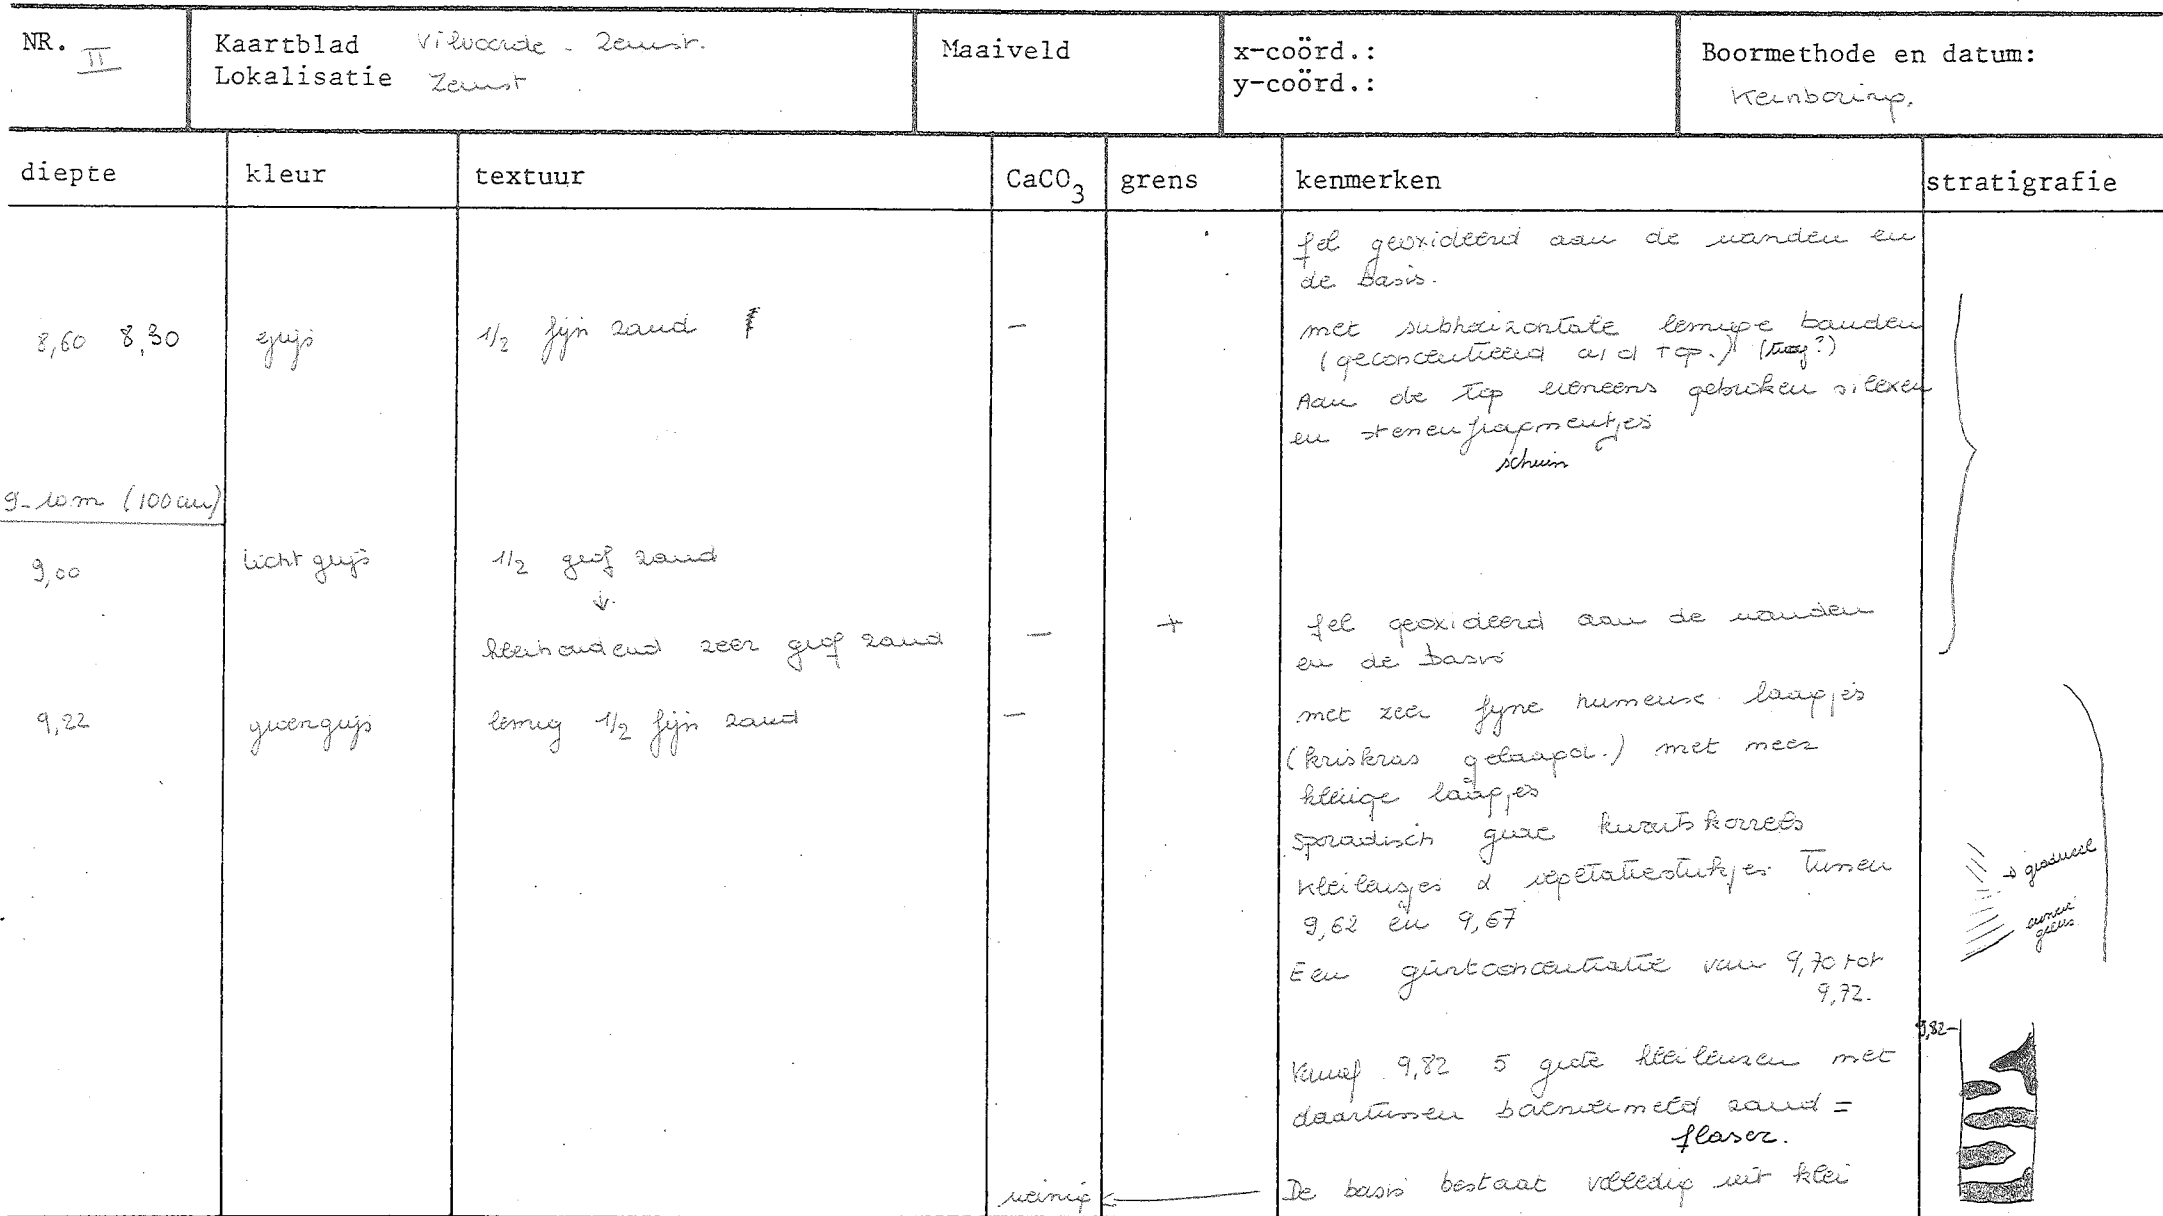 NR. II
Kaartblad Vilvoorde - Zemst.
Lokalisatie Zemst
Maaiveld
x-coörd.:
y-coörd.:
Boormethode en datum:
Kernboring.
diepte kleur textuur CaCO3 grens kenmerken stratigrafie
fel geoxideerd aan de wanden en
de basis.
8,60 8,30 grijs 1/2 fijn zand - met subhorizontale lemige banden
(geconcentreerd a/d top.)
Aan de top eveneens gebroken silexen
en stenenfragmentjes
schuin
9-10m (100cm)
9,00 lichtgrijs 1/2 grof zand
↓
kleihoudend zeer grof zand - + fel geoxideerd aan de wanden
en de basis
9,22 groengrijs lemig 1/2 fijn zand - met zeer fijne humeuse laagjes
(kriskras gelaagd.) met meer
kleiige laagjes
sporadisch grove kwartskorrels
kleilensjes & vegetatiestukjes tussen
9,62 en 9,67
→ gradueel
grens
Een grintconcentratie van 9,70 tot
9,72.
9,82-
Vanaf 9,82 5 grote kleilenzen met
daartussen bovenvermeld zand =
flaser.
weinig ← De basis bestaat volledig uit klei